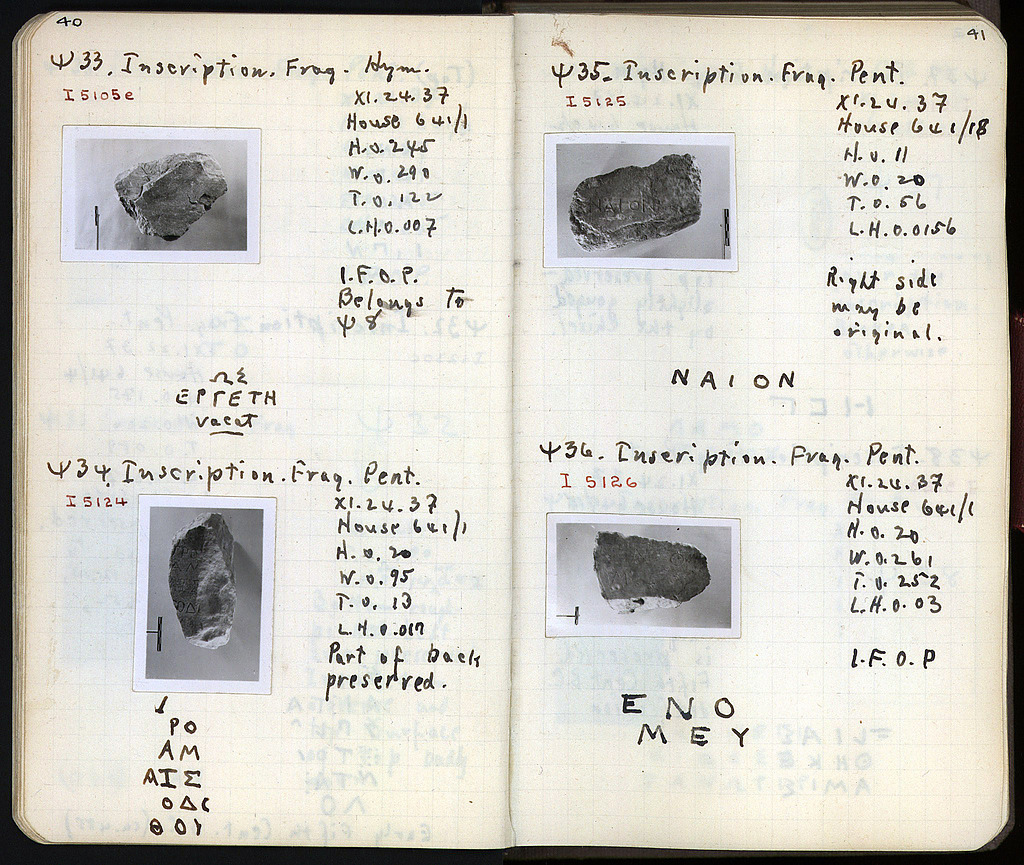 40
Ψ 33. Inscription. Frag. Hym.
I 5105e
XI.24.37
House 641/1
H.0.245
W.0.290
T.0.122
L.H.0.007
I.F.O.P.
Belongs to
Ψ 8
ΩΣ
ΕΡΓΕΤΗ
vacat
Ψ 34. Inscription. Frag. Pent.
I 5124
XI.24.37
House 641/1
H.0.20
W.0.95
T.0.13
L.H.0.017
Part of back
preserved.
ΡΟ
ΑΜ
ΑΙΣ
ΟΔΙ
41
Ψ 35. Inscription. Frag. Pent.
I 5125
XI.24.37
House 641/18
H.0.11
W.0.20
T.0.56
L.H.0.0156
Right side
may be
original.
ΝΑΙΟΝ
Ψ 36. Inscription. Frag. Pent.
I 5126
XI.24.37
House 641/1
H.0.20
W.0.261
T.0.252
L.H.0.03
I.F.O.P
ΕΝΟ
ΜΕΥ